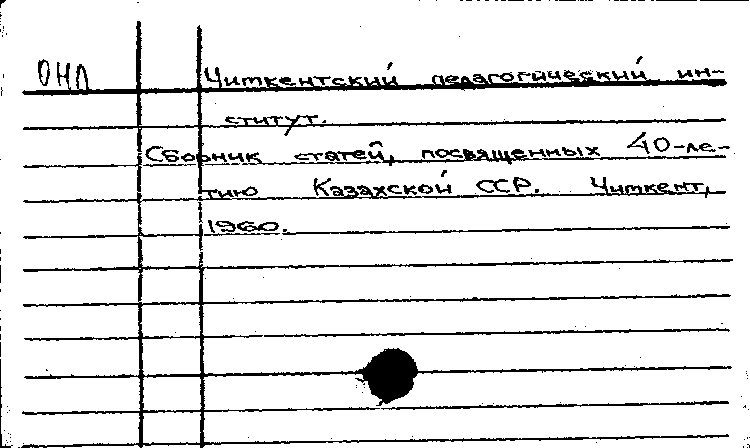 ОНЛ Чимкентский педагогический ин-
ститут.
Сборник статей, посвященных 40-ле-
тию Казахской ССР. Чимкент,
1960.